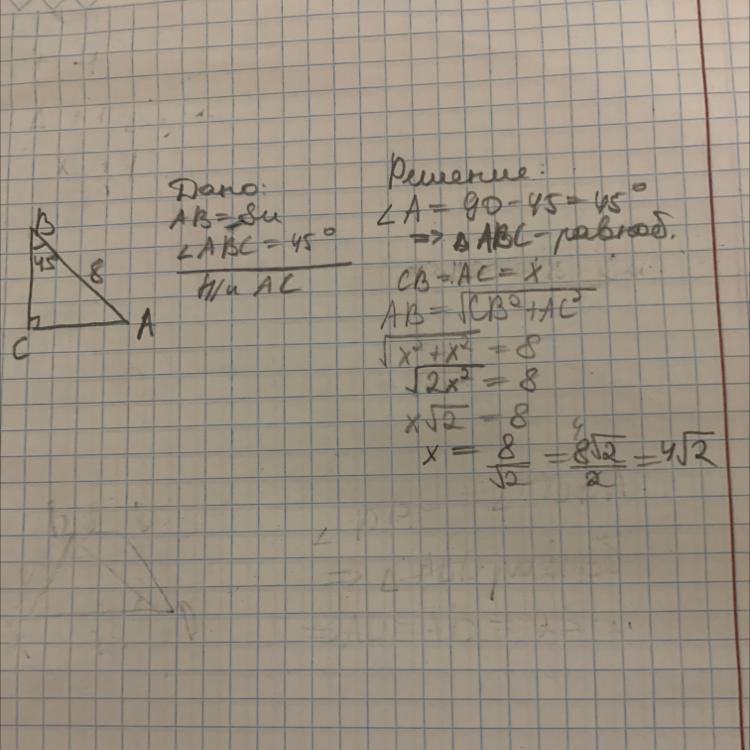 B
45
8
C
A
Дано:
AB = 8м
∠ABC = 45°
AC
Решение:
∠A = 90 - 45 = 45°
=> △ABC - равноб.
CB = AC = x
AB = √CB² + AC²
√x² + x² = 8
√2x² = 8
x√2 = 8
x = 8/√2 = 8√2/2 = 4√2
4